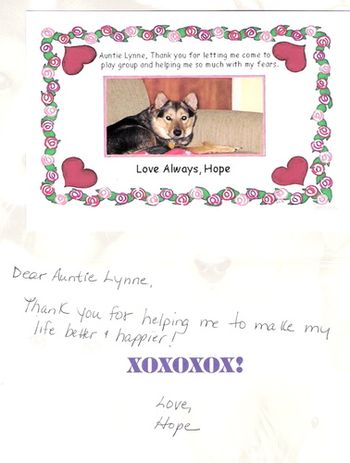 Auntie Lynne, Thank you for letting me come to
play group and helping me so much with my fears.
Love Always, Hope
Dear Auntie Lynne,
Thank you for helping me to make my
life better + happier!
XOXOXOX!
Love,
Hope